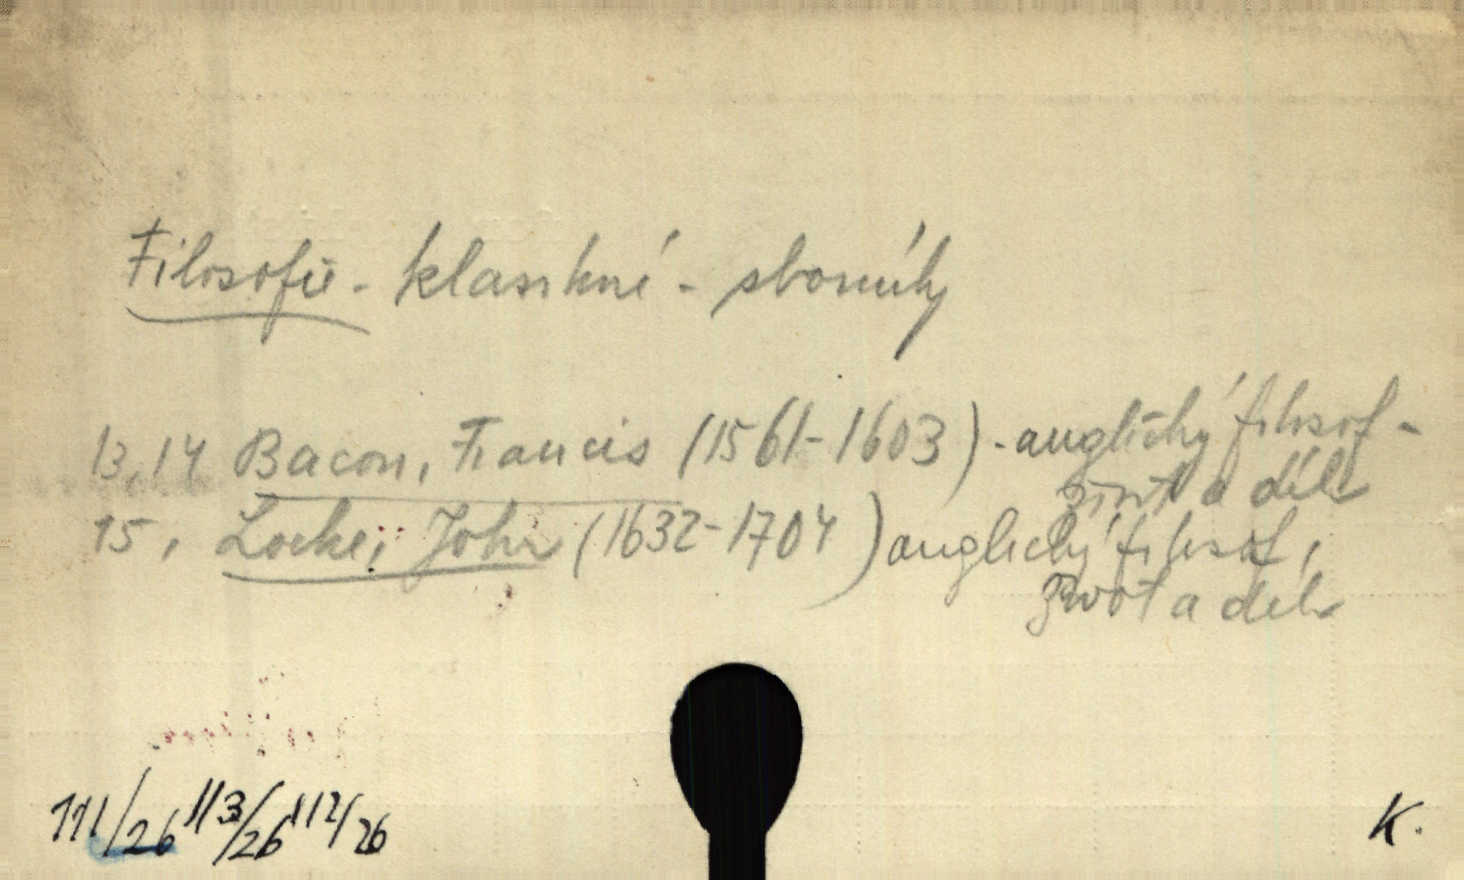 Filosofie - klasikové - sborníky
13, 14 Bacon, Francis (1561-1603) - anglický filosof -
život a dílo
15, Locke, John (1632-1704) anglický filosof,
život a dílo
111/26 113/26 112/26
K.